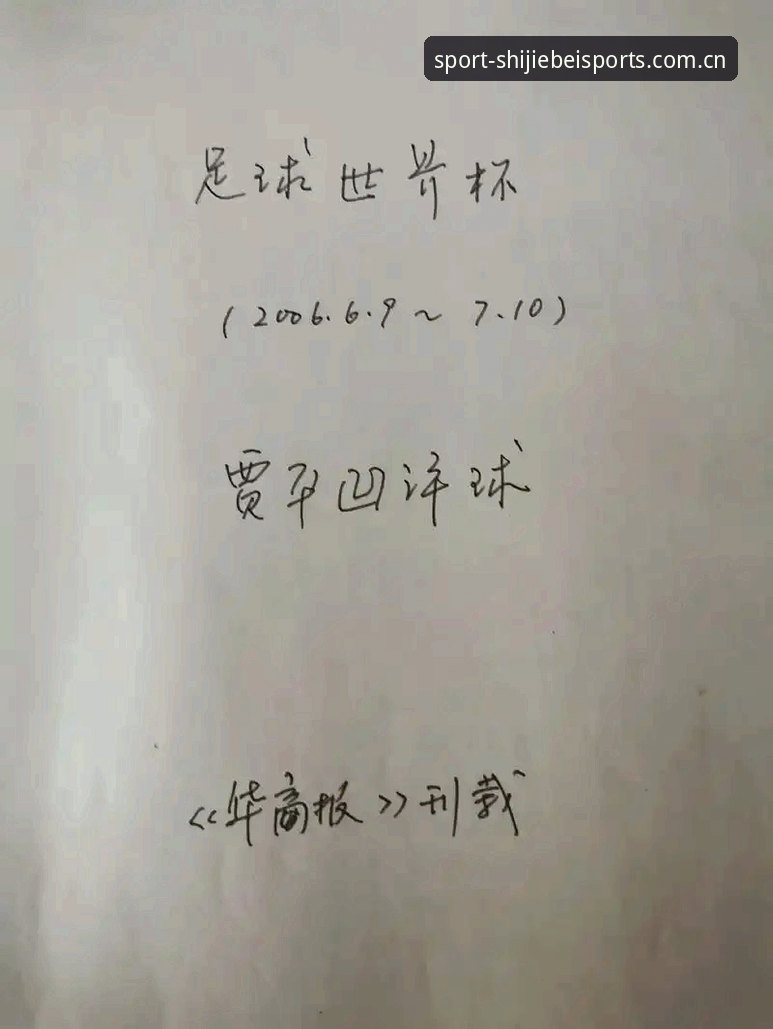 sport-shijiebeisports.com.cn
足球世界杯
(2006.6.9～7.10)
贾平凹评球
《华商报》刊载